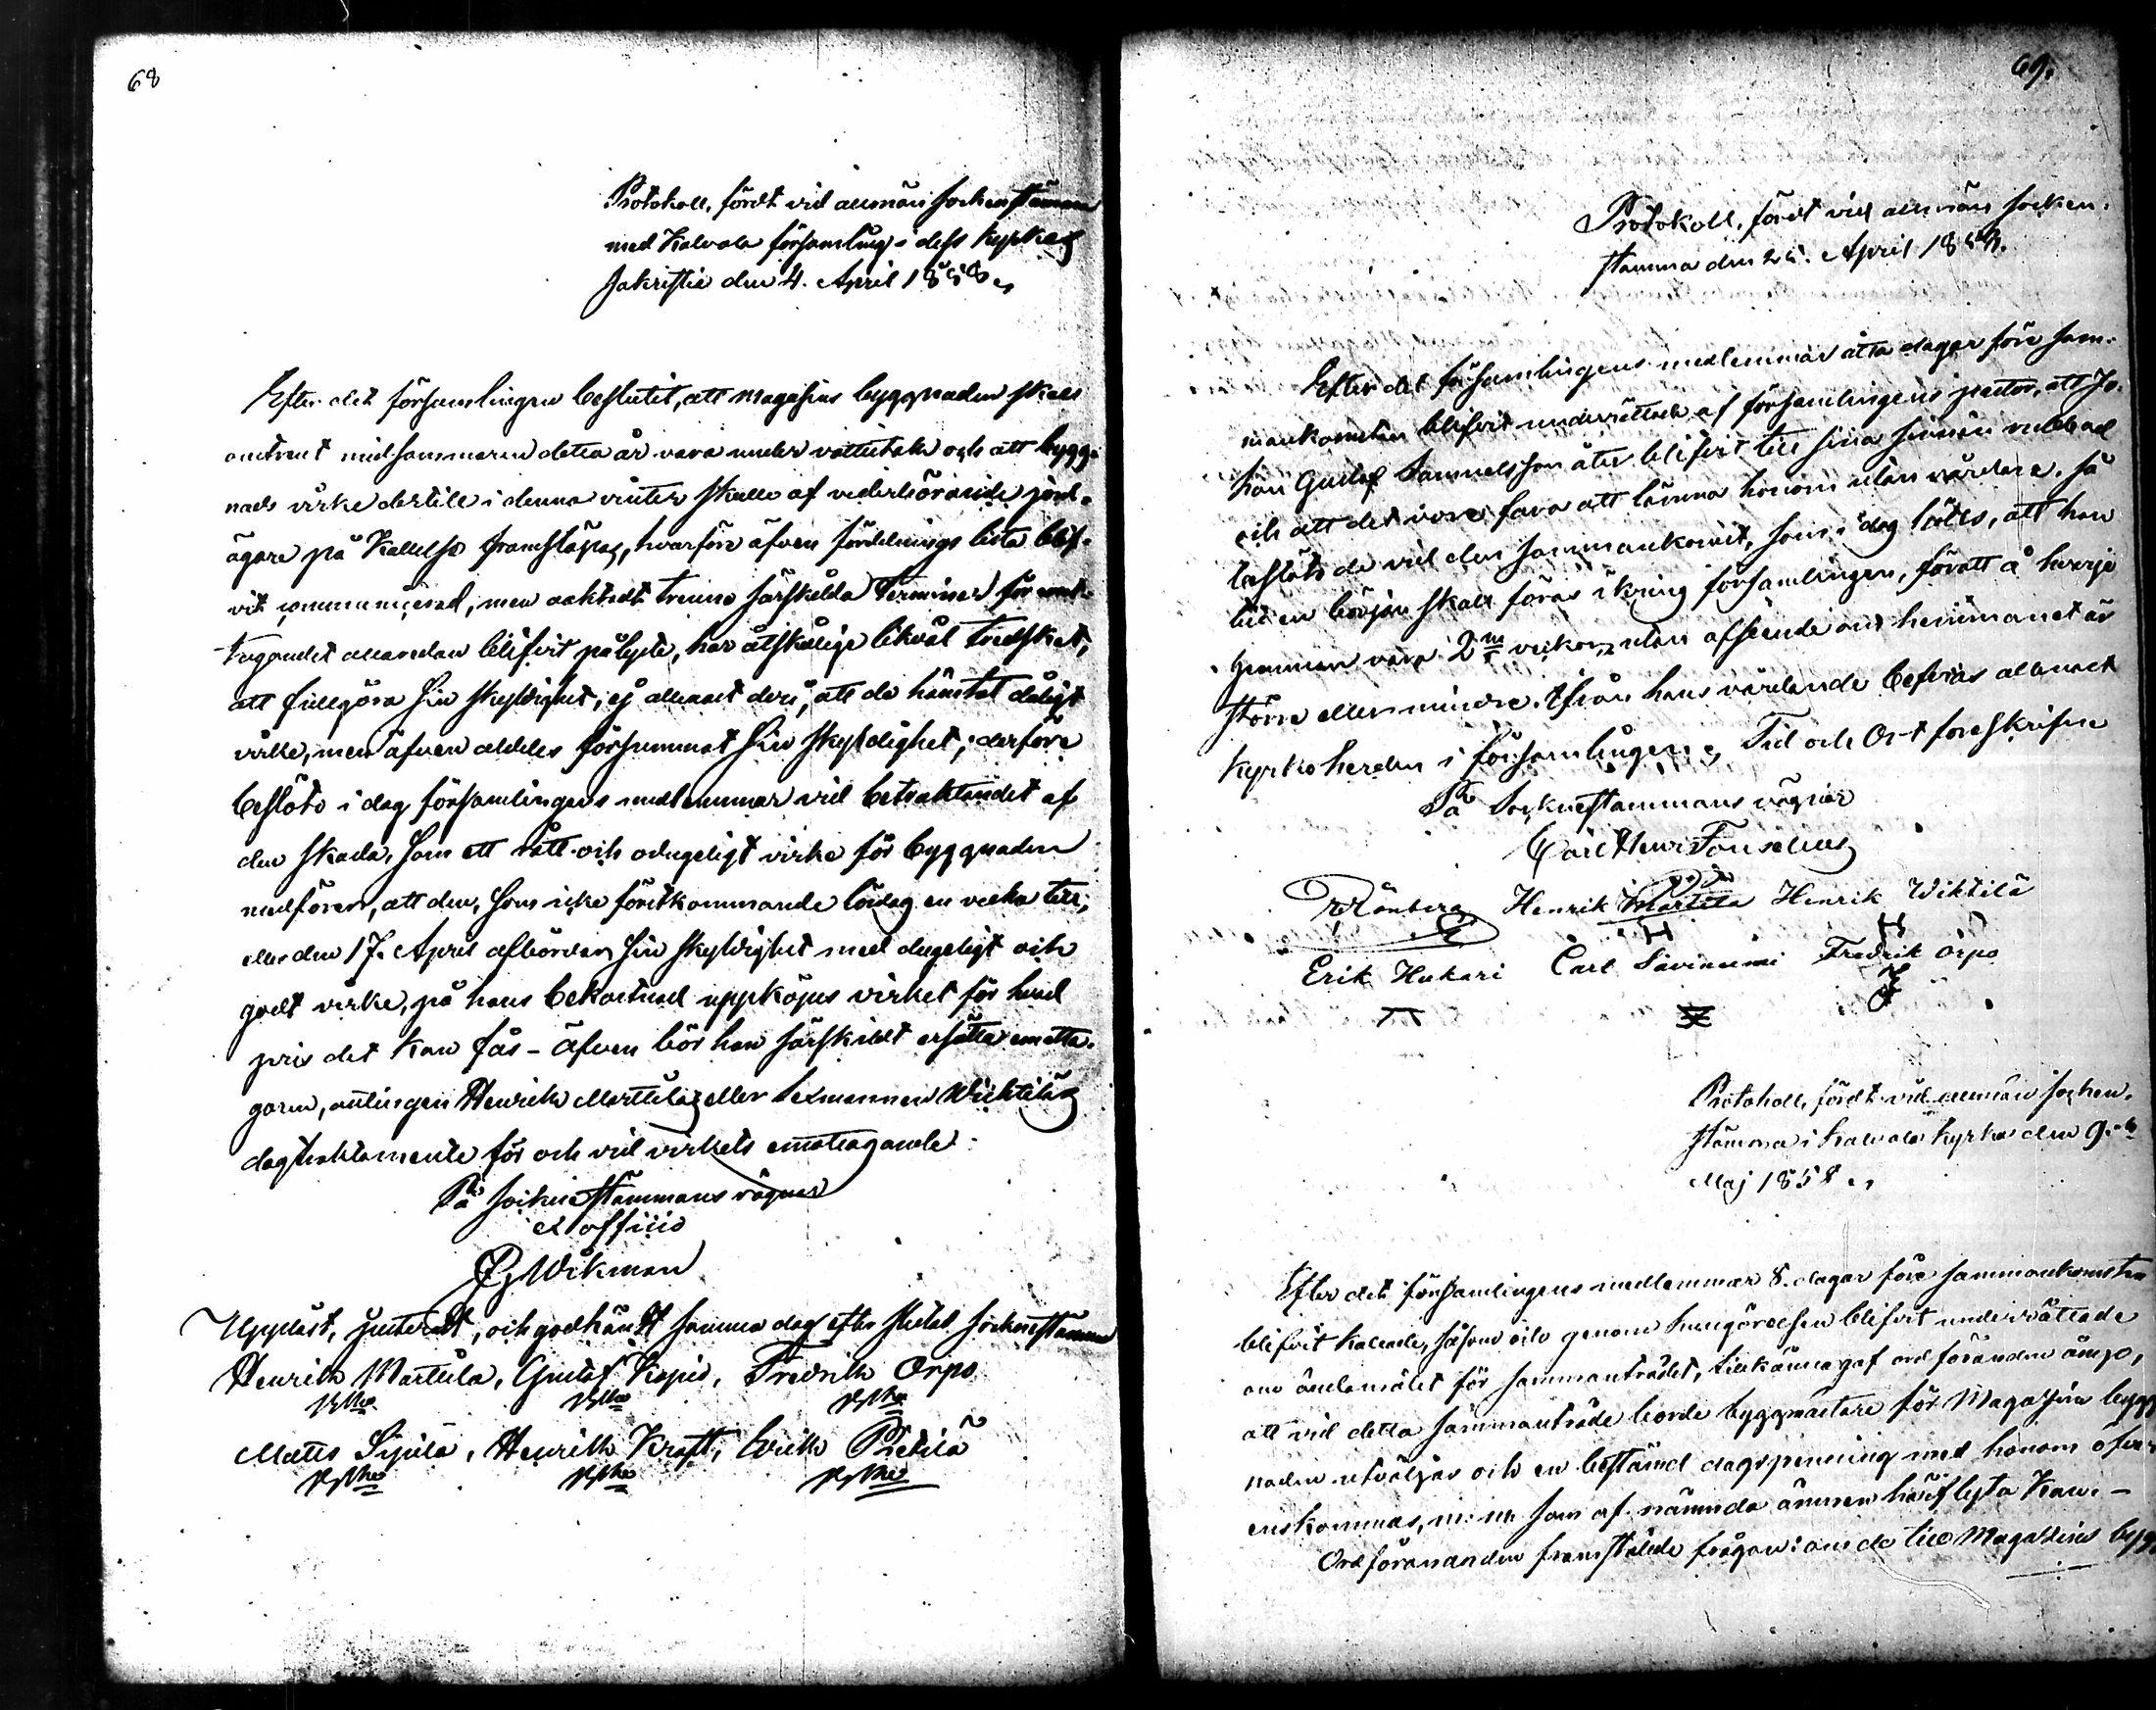 68
Protokoll, fördt vid allmän sockenstämma
med Kalvola församling i dess kyrkas
sakristia den 4. April 1858.,
Efter det församlingen beslutit, att magasins byggnaden skall
omtrent midsommaren detta år vara under vattutak och att bygg-
nads virke dertill i denna vinter skulle af vederbörande jord-
ägare på Kallelse framsläpas, hvarföre äfven fördelnings lista blif-
vit communicerad, men oaktadt trenne särskilda terminer för emot-
tagandet allaredan blifvit pålyste, har åtskillige likväl tredskat,
att fullgöra sin skyldighet, ej allenast deri, att de hämtat dåligt
virke, men äfven alldeles försummat sin skyldighet; derföre
beslöto i dag församlingens medlemmar vid betraktandet af
den skada, som ett rått och odugeligt virke för byggnaden
medförer, att den, som icke förstkommande lördag en vecka till,
eller den 17. April afbördar sin skyldighet med dugeligt och
godt virke, på hans bekostnad uppköpes virket för hvad
pris det kan fås - äfven bör han särskildt ersätta emotta-
garen, antingen Henrik Marttila eller sexmannen Wichtilä
dagtraktamente för och vid virkets emottagande.
På Sockne Stämmans vägnar
ex officio
Wikman
Uppläst, justeradt, och godkändt samma dag efter slutad sockenstämma
Henrik Marttila, Gustaf Kepis, Fredrik Orpo
Matts Sipilä, Henrik Kraft, Erik Pietilä
69.
Protokoll, fördt vid allmän socken-
stämma den 25. April 1858.
Efter det församlingens medlemmar åtta dagar före sam-
mankomsten blifvit underrättade af församlingens pastor, att Jo-
han Gustaf Samuelsson åter blifvit till sina sinnen rubbad
och att det vore fara att lämna honom utan vårdare, så
beslöto de vid den sammankomst, som i dag hölls, att han
till en början skall föras ikring församlingen, föratt å hvarje
hemman vara 2 veckor, utan afseende om hemmanet är
större eller mindre. Ifrån hans vårdande befrias allenast
kyrkoherden i församlingen., Tid och Ort föreskrifne
På Socknestämmans vägnar
Carl Henr Fonselius
Rönberg Henrik Marttila Henrik Wiktilä
Erik Hukari Carl Savinimi Fredrik Orpo
Protokoll, fördt vid allmän socken-
stämma i Kalvola kyrka den 9.
Maj 1858.,
Efter det församlingens medlemmar 8. dagar före sammankomsten
blifvit kallade, såsom ock genom kungörelsen blifvit underrättade
om ändamålet för sammanträdet, tillkännagaf ordföranden ännu,
att vid detta sammanträde borde byggmästare för Magasins bygg
naden utväljas och en bestämd dagspenning med honom öfver-
enskommas, m: m. som af nämnda ämnen härflyta kan. -
Ordföranden framställde frågan: om de till Magasins bygg